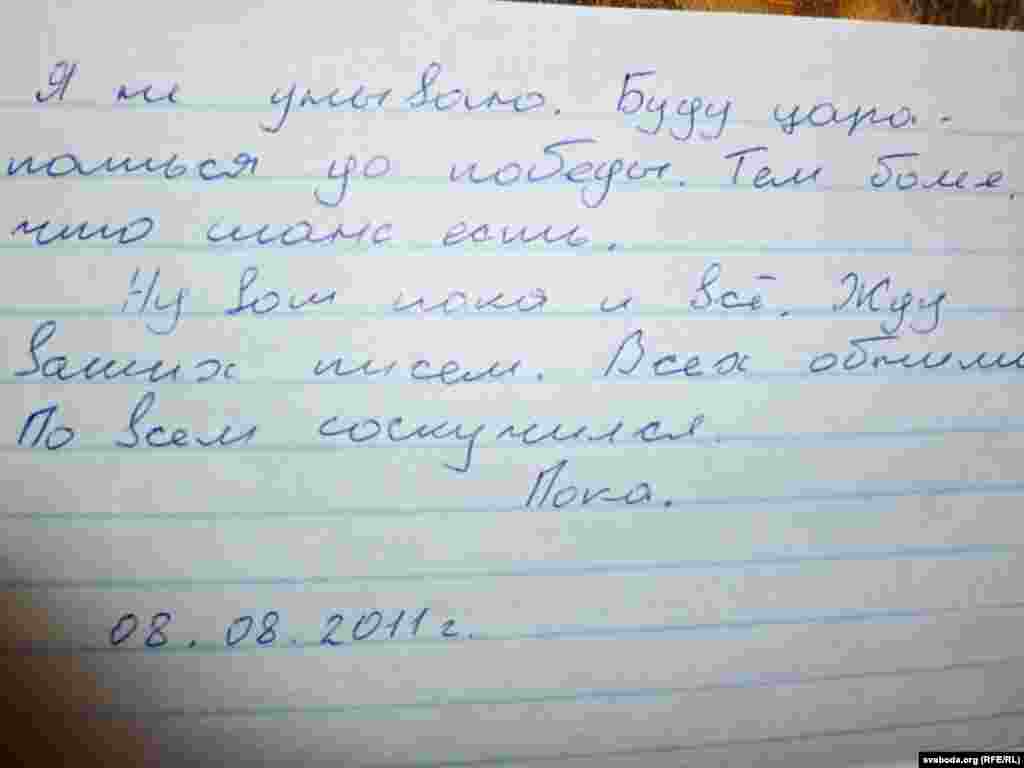 Я не унываю. Буду цара-
паться до победы. Тем более,
что шанс есть.
Ну вот пока и всё. Жду
ваших писем. Всех обнимаю
По всем соскучился.
Пока.
08.08.2011 г.
svaboda.org (RFE/RL)